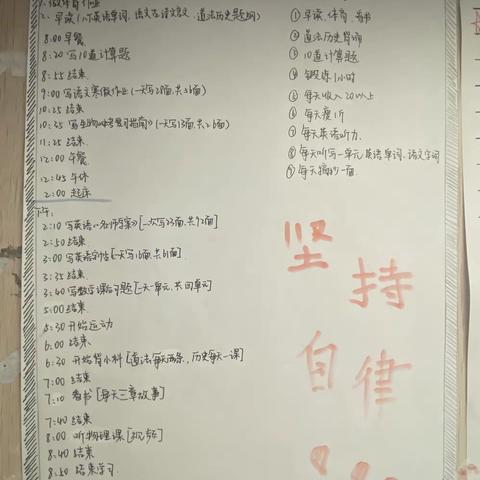 2. 早读(小于英语单词、语文古诗文言文、道法历史题纲)
8:00 早餐
8:20 写10道计算题
8:55 结束
9:00 写语文寒假作业
10:25 结束
10:35 写生物
11:25 结束
12:00 午餐
12:45 午休
2:00 起床
下午:
2:10 写英语《名师导案》
2:50 结束
3:00 写英语字帖
3:35 结束
3:40 写数学课后习题[一天一单元,共四单元]
5:00 结束
5:30 开始运动
6:00 结束
6:30 开始背小科[道法每天两条,历史每天一课]
7:00 结束
7:10 看书[每天三章故事]
7:40 结束
8:00 听物理课[视频]
8:40 结束
8:50 结束学习
① 早读、体育、看书
② 道法历史背诵
③ 10道计算题
④ 锻炼1小时
⑤ 每天收入20以上
⑥ 每天瘦1斤
⑦ 每天英语听力
⑧ 每天听写一单元英语单词、语文字词
⑨ 每天摘抄一面
坚持
自律